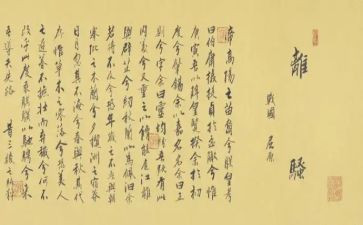 離騷
戰國 屈原
帝高陽之苗裔兮朕皇考
曰伯庸攝提貞於孟陬兮惟
庚寅吾以降皇覽揆余於初
度兮肇錫余以嘉名名余曰正
則兮字余曰靈均紛吾既有此
內美兮又重之以修能扈江離
與辟芷兮紉秋蘭以為佩汩余
若將不及兮恐年歲之不吾與朝
搴阰之木蘭兮夕攬洲之宿莽
日月忽其不淹兮春與秋其代
序惟草木之零落兮恐美人
之遲暮不撫壯而棄穢兮何不
改乎此度乘騏驥以馳騁兮來
吾導夫先路 昔三後之純粹